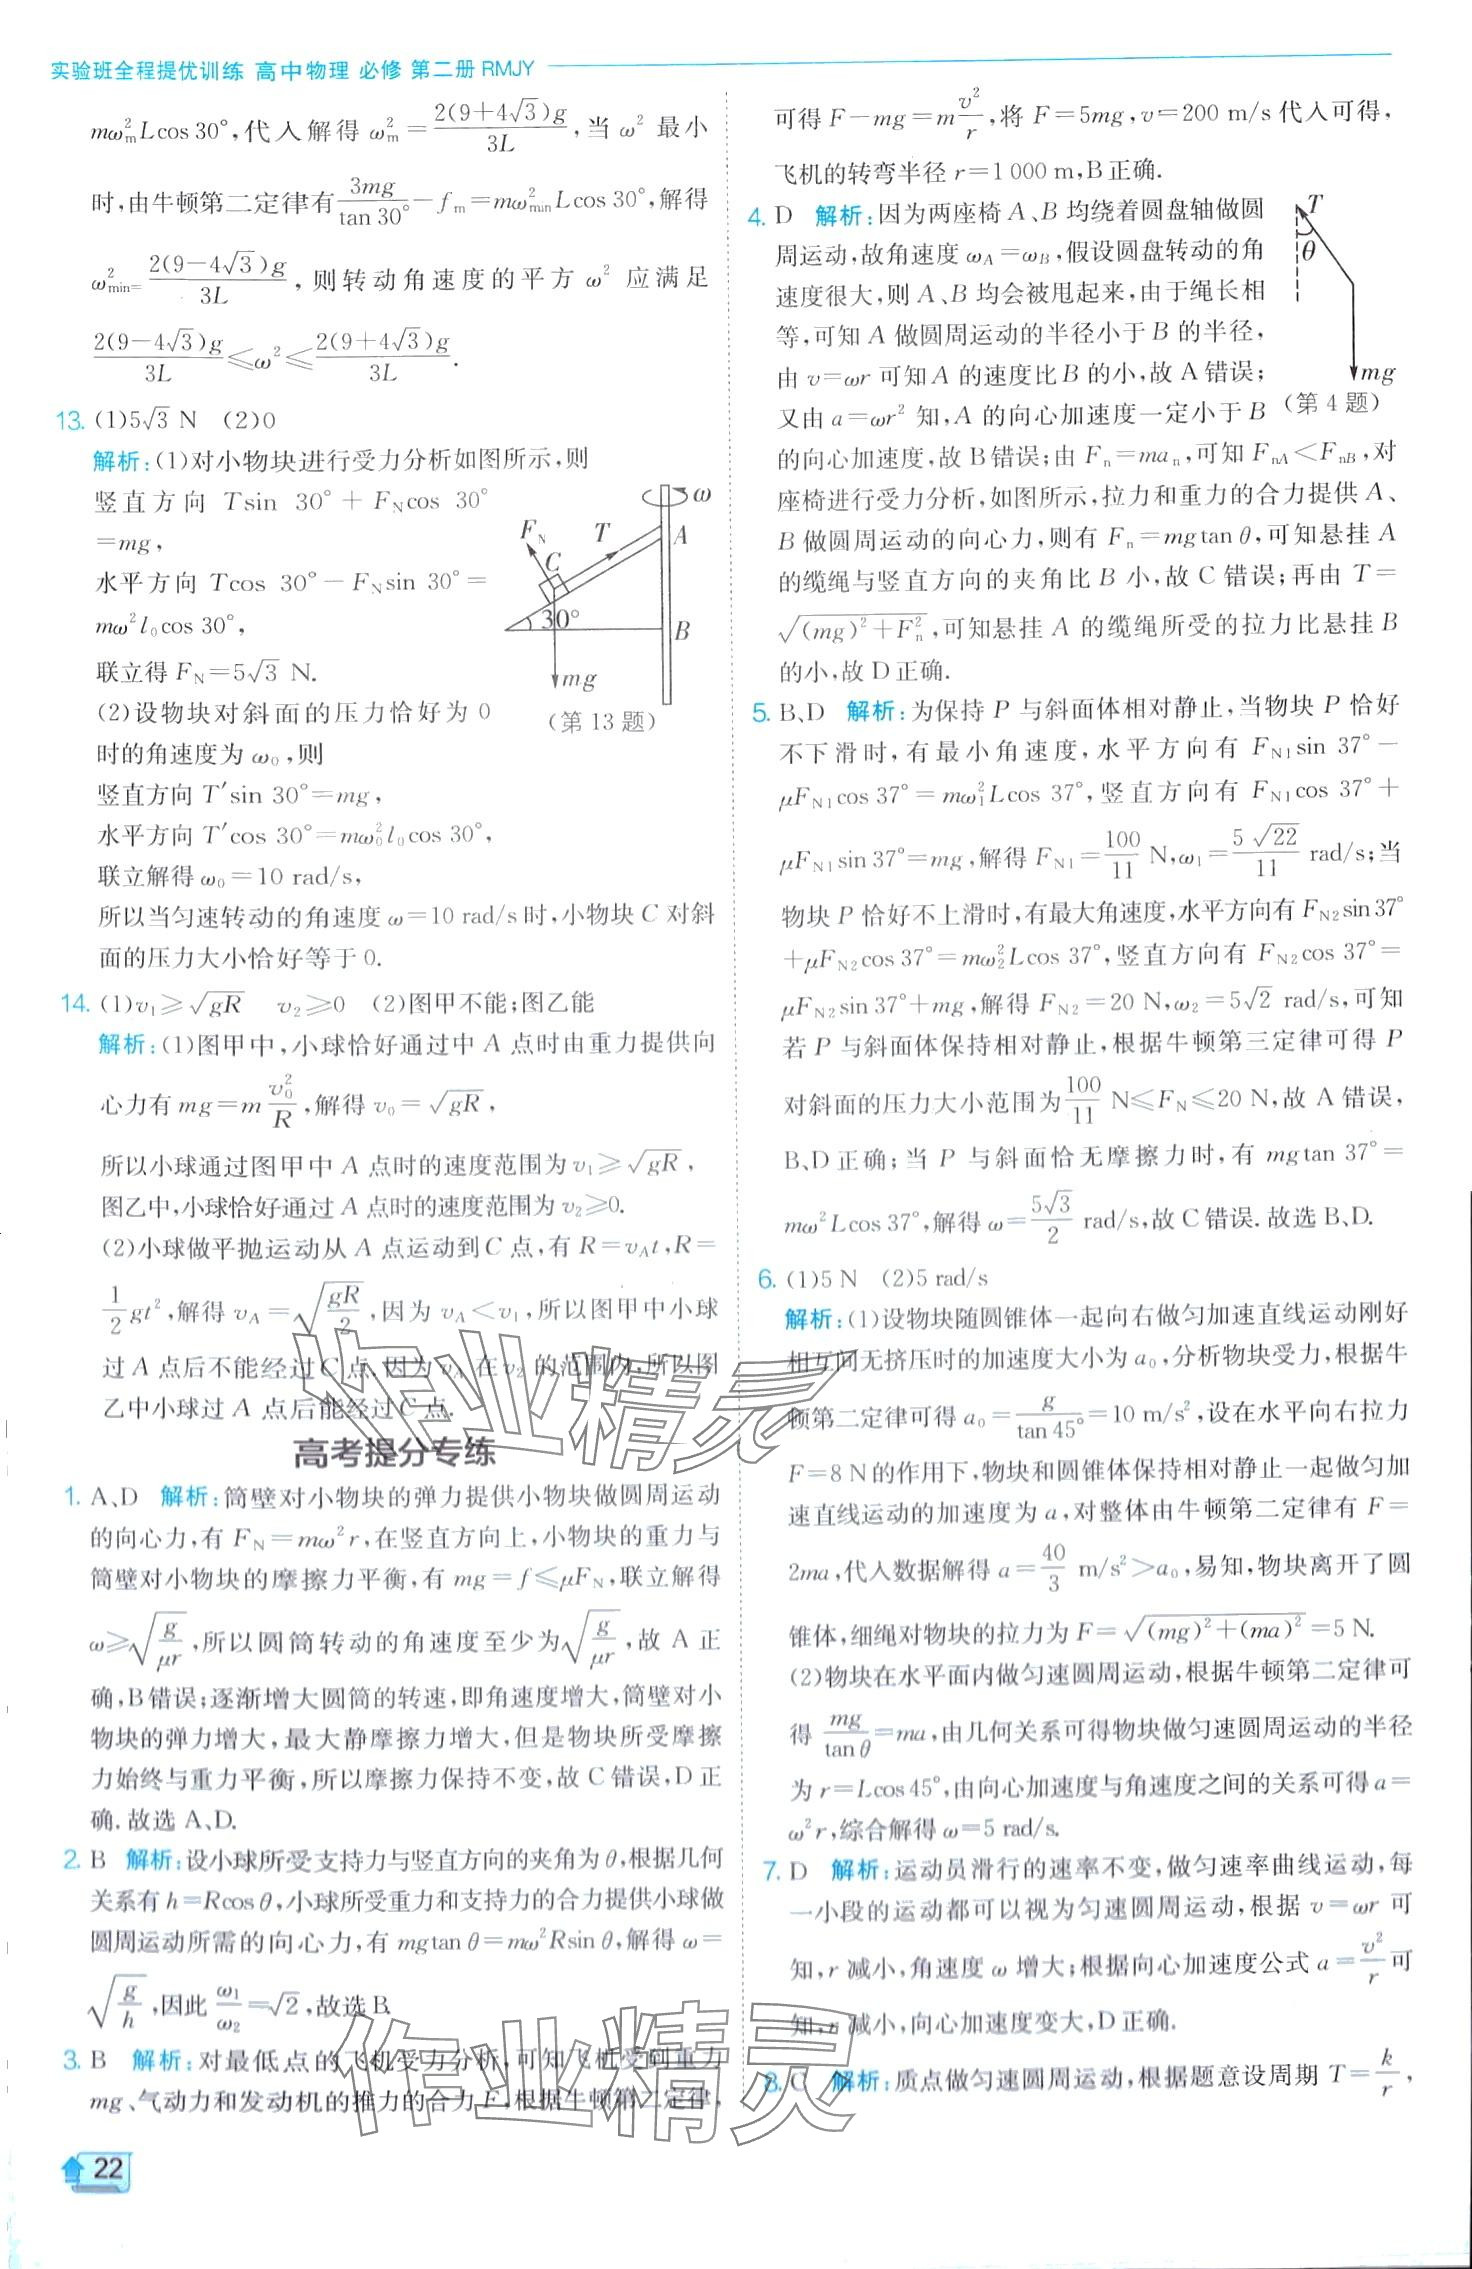 实验班全程提优训练 高中物理 必修 第二册 RMJY
mω²ₘLcos 30°,代入解得 ω²ₘ=2(9+4√3)g/3L,当 ω² 最小
时,由牛顿第二定律有 3mg/tan 30°−fₘ=mω²minLcos 30°,解得
ω²min=2(9−4√3)g/3L,则转动角速度的平方 ω² 应满足
2(9−4√3)g/3L≤ω²≤2(9+4√3)g/3L.
13. (1)5√3 N (2)0
解析:(1)对小物块进行受力分析如图所示,则
竖直方向 Tsin 30°+F_N cos 30°
=mg,
水平方向 Tcos 30°−F_N sin 30°=
mω²l₀cos 30°,
联立得 F_N=5√3 N.
(2)设物块对斜面的压力恰好为 0
时的角速度为 ω₀,则
竖直方向 T′sin 30°=mg,
水平方向 T′cos 30°=mω₀²l₀cos 30°,
联立解得 ω₀=10 rad/s,
所以当匀速转动的角速度 ω=10 rad/s时,小物块 C 对斜
面的压力大小恰好等于 0.
ω
F_N
T
A
C
30°
B
mg
(第 13 题)
14. (1)v₁≥√gR v₂≥0 (2)图甲不能;图乙能
解析:(1)图甲中,小球恰好通过中 A 点时由重力提供向
心力有 mg=m v₀²/R,解得 v₀=√gR,
所以小球通过图甲中 A 点时的速度范围为 v₁≥√gR,
图乙中,小球恰好通过 A 点时的速度范围为 v₂≥0.
(2)小球做平抛运动从 A 点运动到 C 点,有 R=v_A t,R=
1/2 gt²,解得 v_A=√(gR/2),因为 v_A<v₁,所以图甲中小球
过 A 点后不能经过 C 点.因为 v_A 在 v₂ 的范围内,所以图
乙中小球过 A 点后能经过 C 点.
高考提分专练
1. A、D 解析:筒壁对小物块的弹力提供小物块做圆周运动
的向心力,有 F_N=mω²r,在竖直方向上,小物块的重力与
筒壁对小物块的摩擦力平衡,有 mg=f≤μF_N,联立解得
ω≥√(g/μr),所以圆筒转动的角速度至少为√(g/μr),故 A 正
确,B 错误;逐渐增大圆筒的转速,即角速度增大,筒壁对小
物块的弹力增大,最大静摩擦力增大,但是物块所受摩擦
力始终与重力平衡,所以摩擦力保持不变,故 C 错误,D 正
确.故选 A、D.
2. B 解析:设小球所受支持力与竖直方向的夹角为 θ,根据几何
关系有 h=Rcos θ,小球所受重力和支持力的合力提供小球做
圆周运动所需的向心力,有 mgtan θ=mω²Rsin θ,解得 ω=
√(g/h),因此 ω₁/ω₂=√2,故选 B.
3. B 解析:对最低点的飞机受力分析,可知飞机受到重力
mg、气动力和发动机的推力的合力 F,根据牛顿第二定律,
可得 F−mg=m v²/r,将 F=5mg,v=200 m/s 代入可得,
飞机的转弯半径 r=1 000 m,B 正确.
4. D 解析:因为两座椅 A、B 均绕着圆盘轴做圆
周运动,故角速度 ω_A=ω_B,假设圆盘转动的角
速度很大,则 A、B 均会被甩起来,由于绳长相
等,可知 A 做圆周运动的半径小于 B 的半径,
由 v=ωr 可知 A 的速度比 B 的小,故 A 错误;
又由 a=ωr² 知,A 的向心加速度一定小于 B
的向心加速度,故 B 错误;由 Fₙ=maₙ,可知 F_nA<F_nB,对
座椅进行受力分析,如图所示,拉力和重力的合力提供 A、
B 做圆周运动的向心力,则有 Fₙ=mgtan θ,可知悬挂 A
的缆绳与竖直方向的夹角比 B 小,故 C 错误;再由 T=
√((mg)²+Fₙ²),可知悬挂 A 的缆绳所受的拉力比悬挂 B
的小,故 D 正确.
T
θ
mg
(第 4 题)
5. B、D 解析:为保持 P 与斜面体相对静止,当物块 P 恰好
不下滑时,有最小角速度,水平方向有 F_N1 sin 37°−
μF_N1 cos 37°=mω₁²Lcos 37°,竖直方向有 F_N1 cos 37°+
μF_N1 sin 37°=mg,解得 F_N1=100/11 N,ω₁=5√22/11 rad/s;当
物块 P 恰好不上滑时,有最大角速度,水平方向有 F_N2 sin 37°
+μF_N2 cos 37°=mω₂²Lcos 37°,竖直方向有 F_N2 cos 37°=
μF_N2 sin 37°+mg,解得 F_N2=20 N,ω₂=5√2 rad/s,可知
若 P 与斜面体保持相对静止,根据牛顿第三定律可得 P
对斜面的压力大小范围为 100/11 N≤F_N≤20 N,故 A 错误,
B、D 正确;当 P 与斜面恰无摩擦力时,有 mgtan 37°=
mω²Lcos 37°,解得 ω=5√3/2 rad/s,故 C 错误.故选 B、D.
6. (1)5 N (2)5 rad/s
解析:(1)设物块随圆锥体一起向右做匀加速直线运动刚好
相互间无挤压时的加速度大小为 a₀,分析物块受力,根据牛
顿第二定律可得 a₀=g/tan 45°=10 m/s²,设在水平向右拉力
F=8 N 的作用下,物块和圆锥体保持相对静止一起做匀加
速直线运动的加速度为 a,对整体由牛顿第二定律有 F=
2ma,代入数据解得 a=40/3 m/s²>a₀,易知,物块离开了圆
锥体,细绳对物块的拉力为 F=√((mg)²+(ma)²)=5 N.
(2)物块在水平面内做匀速圆周运动,根据牛顿第二定律可
得 mg/tan θ=ma,由几何关系可得物块做匀速圆周运动的半径
为 r=Lcos 45°,由向心加速度与角速度之间的关系可得 a=
ω²r,综合解得 ω=5 rad/s.
7. D 解析:运动员滑行的速率不变,做匀速率曲线运动,每
一小段的运动都可以视为匀速圆周运动,根据 v=ωr 可
知,r 减小,角速度 ω 增大;根据向心加速度公式 a=v²/r 可
知,r 减小,向心加速度变大,D 正确.
8. C 解析:质点做匀速圆周运动,根据题意设周期 T=k/r,
作业精灵
作业精灵
22